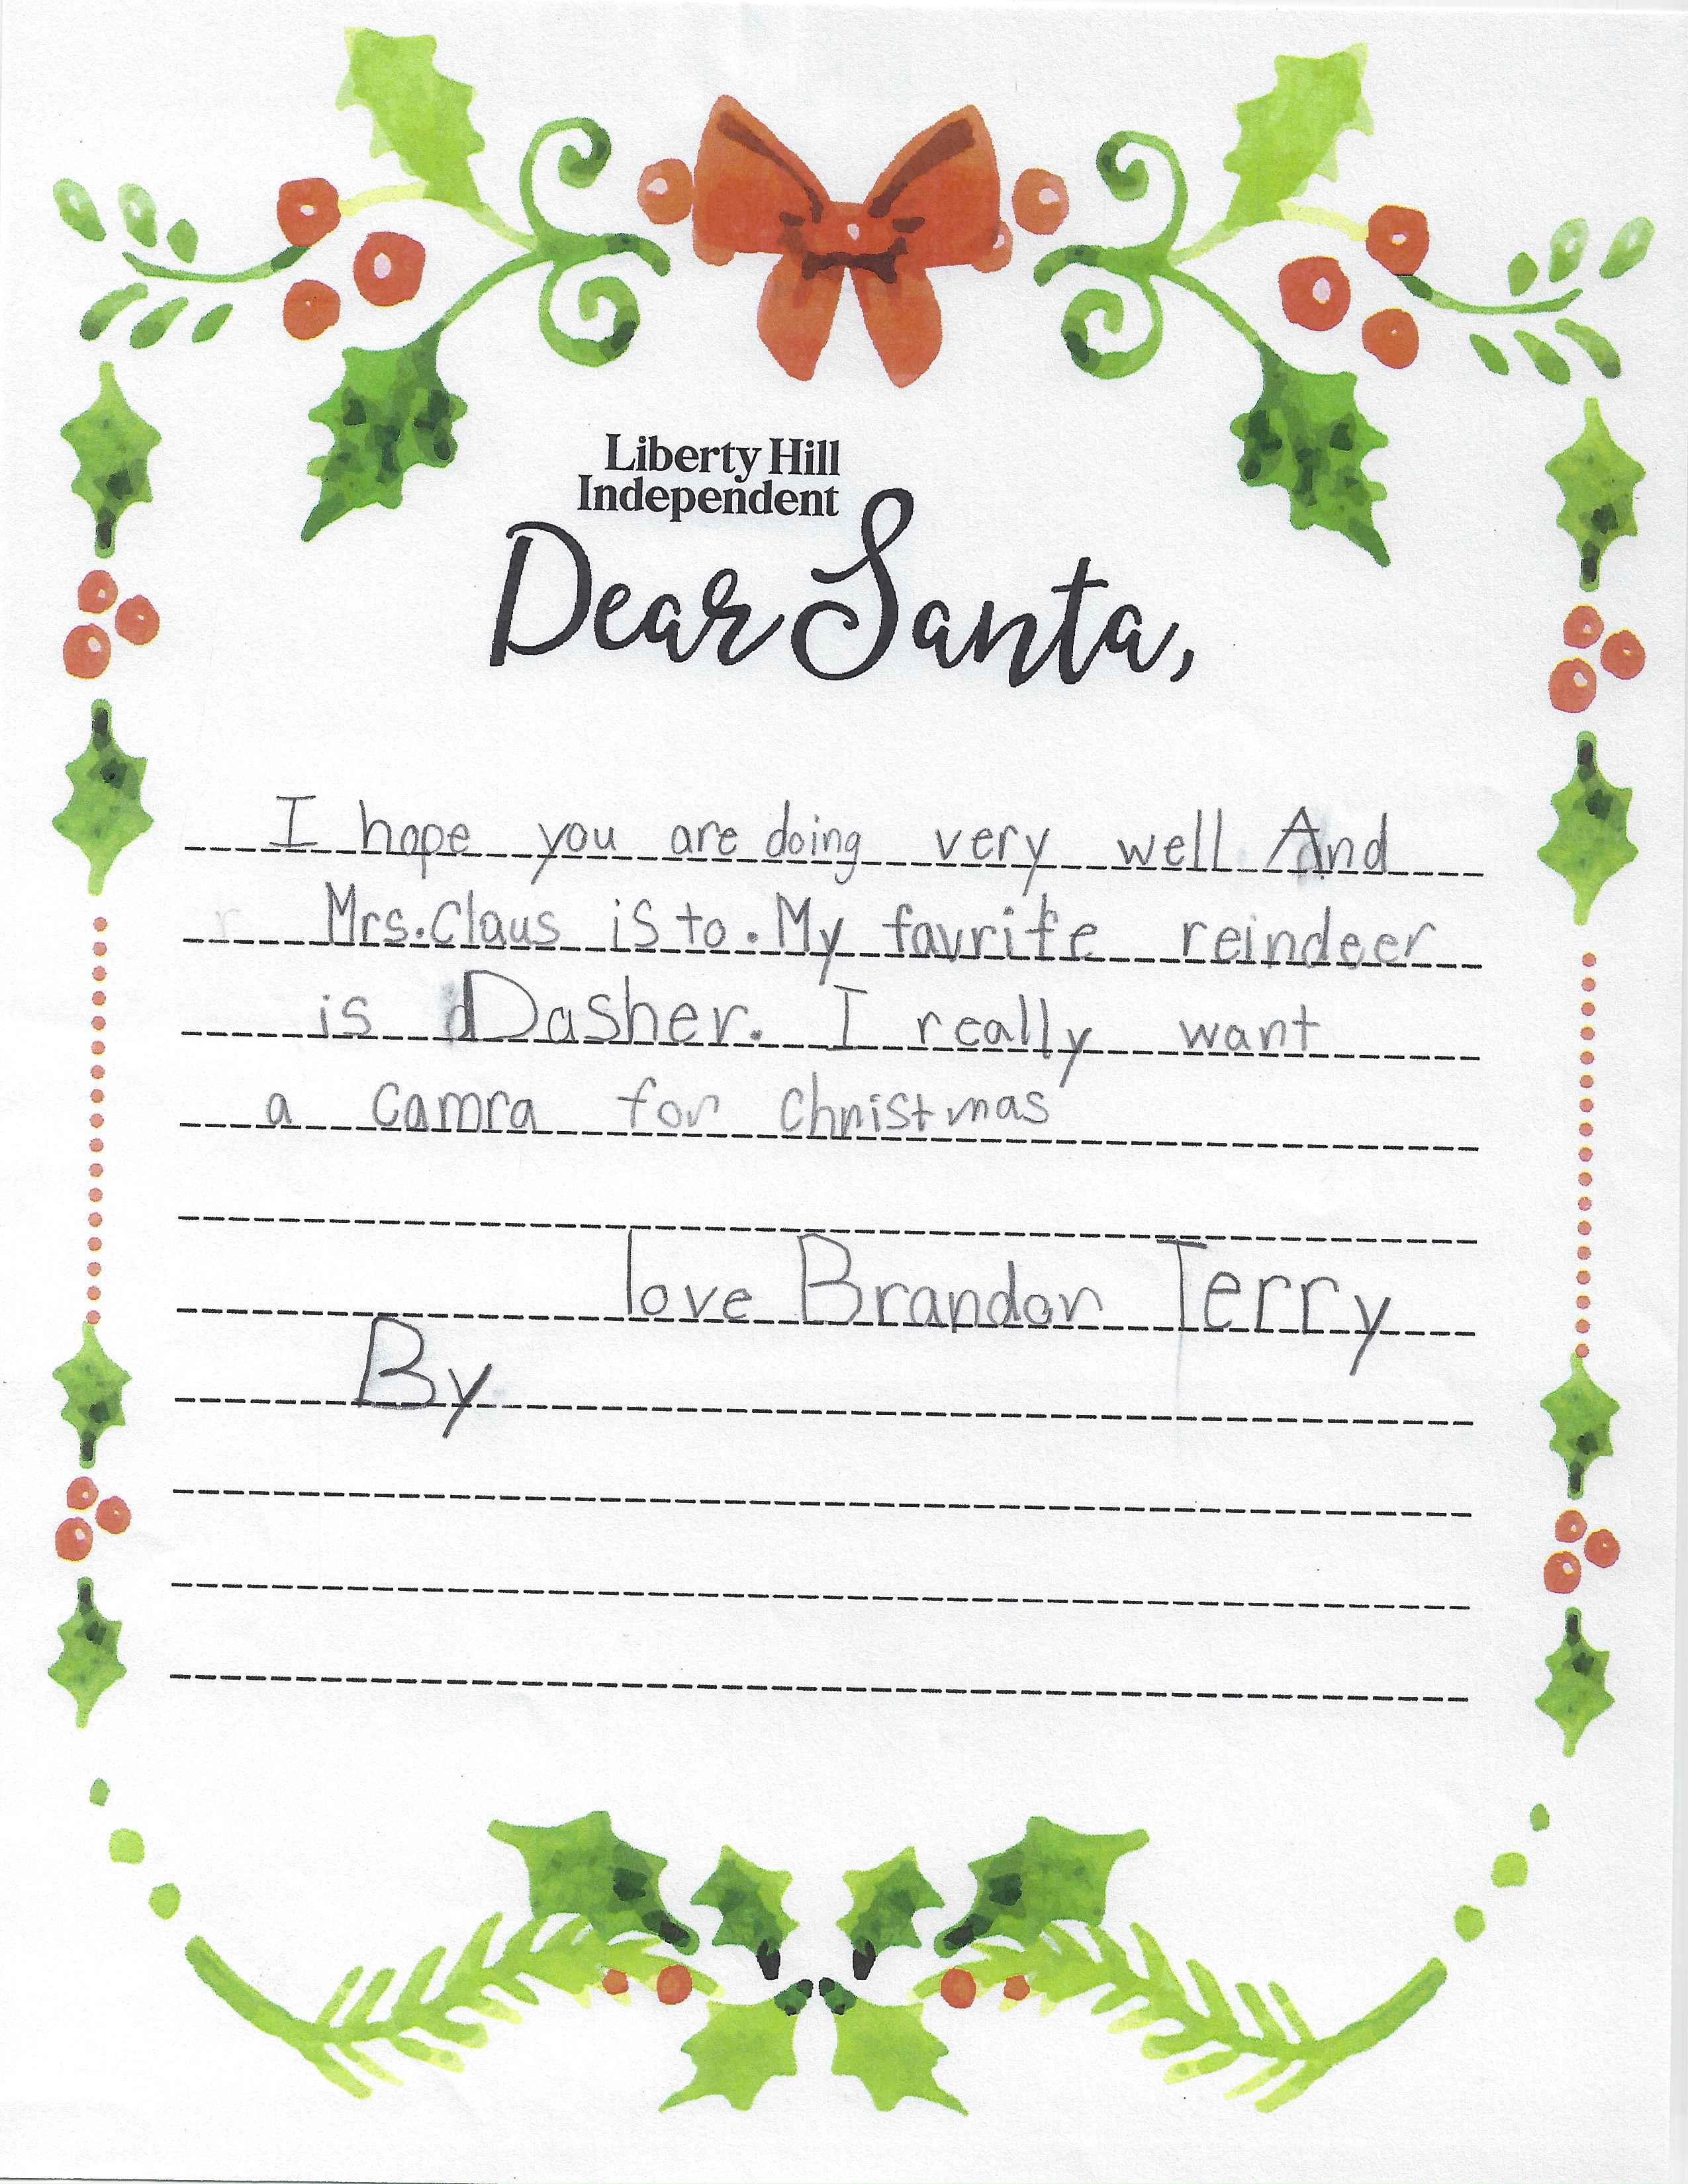 Liberty Hill
Independent
Dear Santa,
I hope you are doing very well And
Mrs. Claus is to. My favrite reindeer
is Dasher. I really want
a camra for Christmas
love Brandon Terry
By